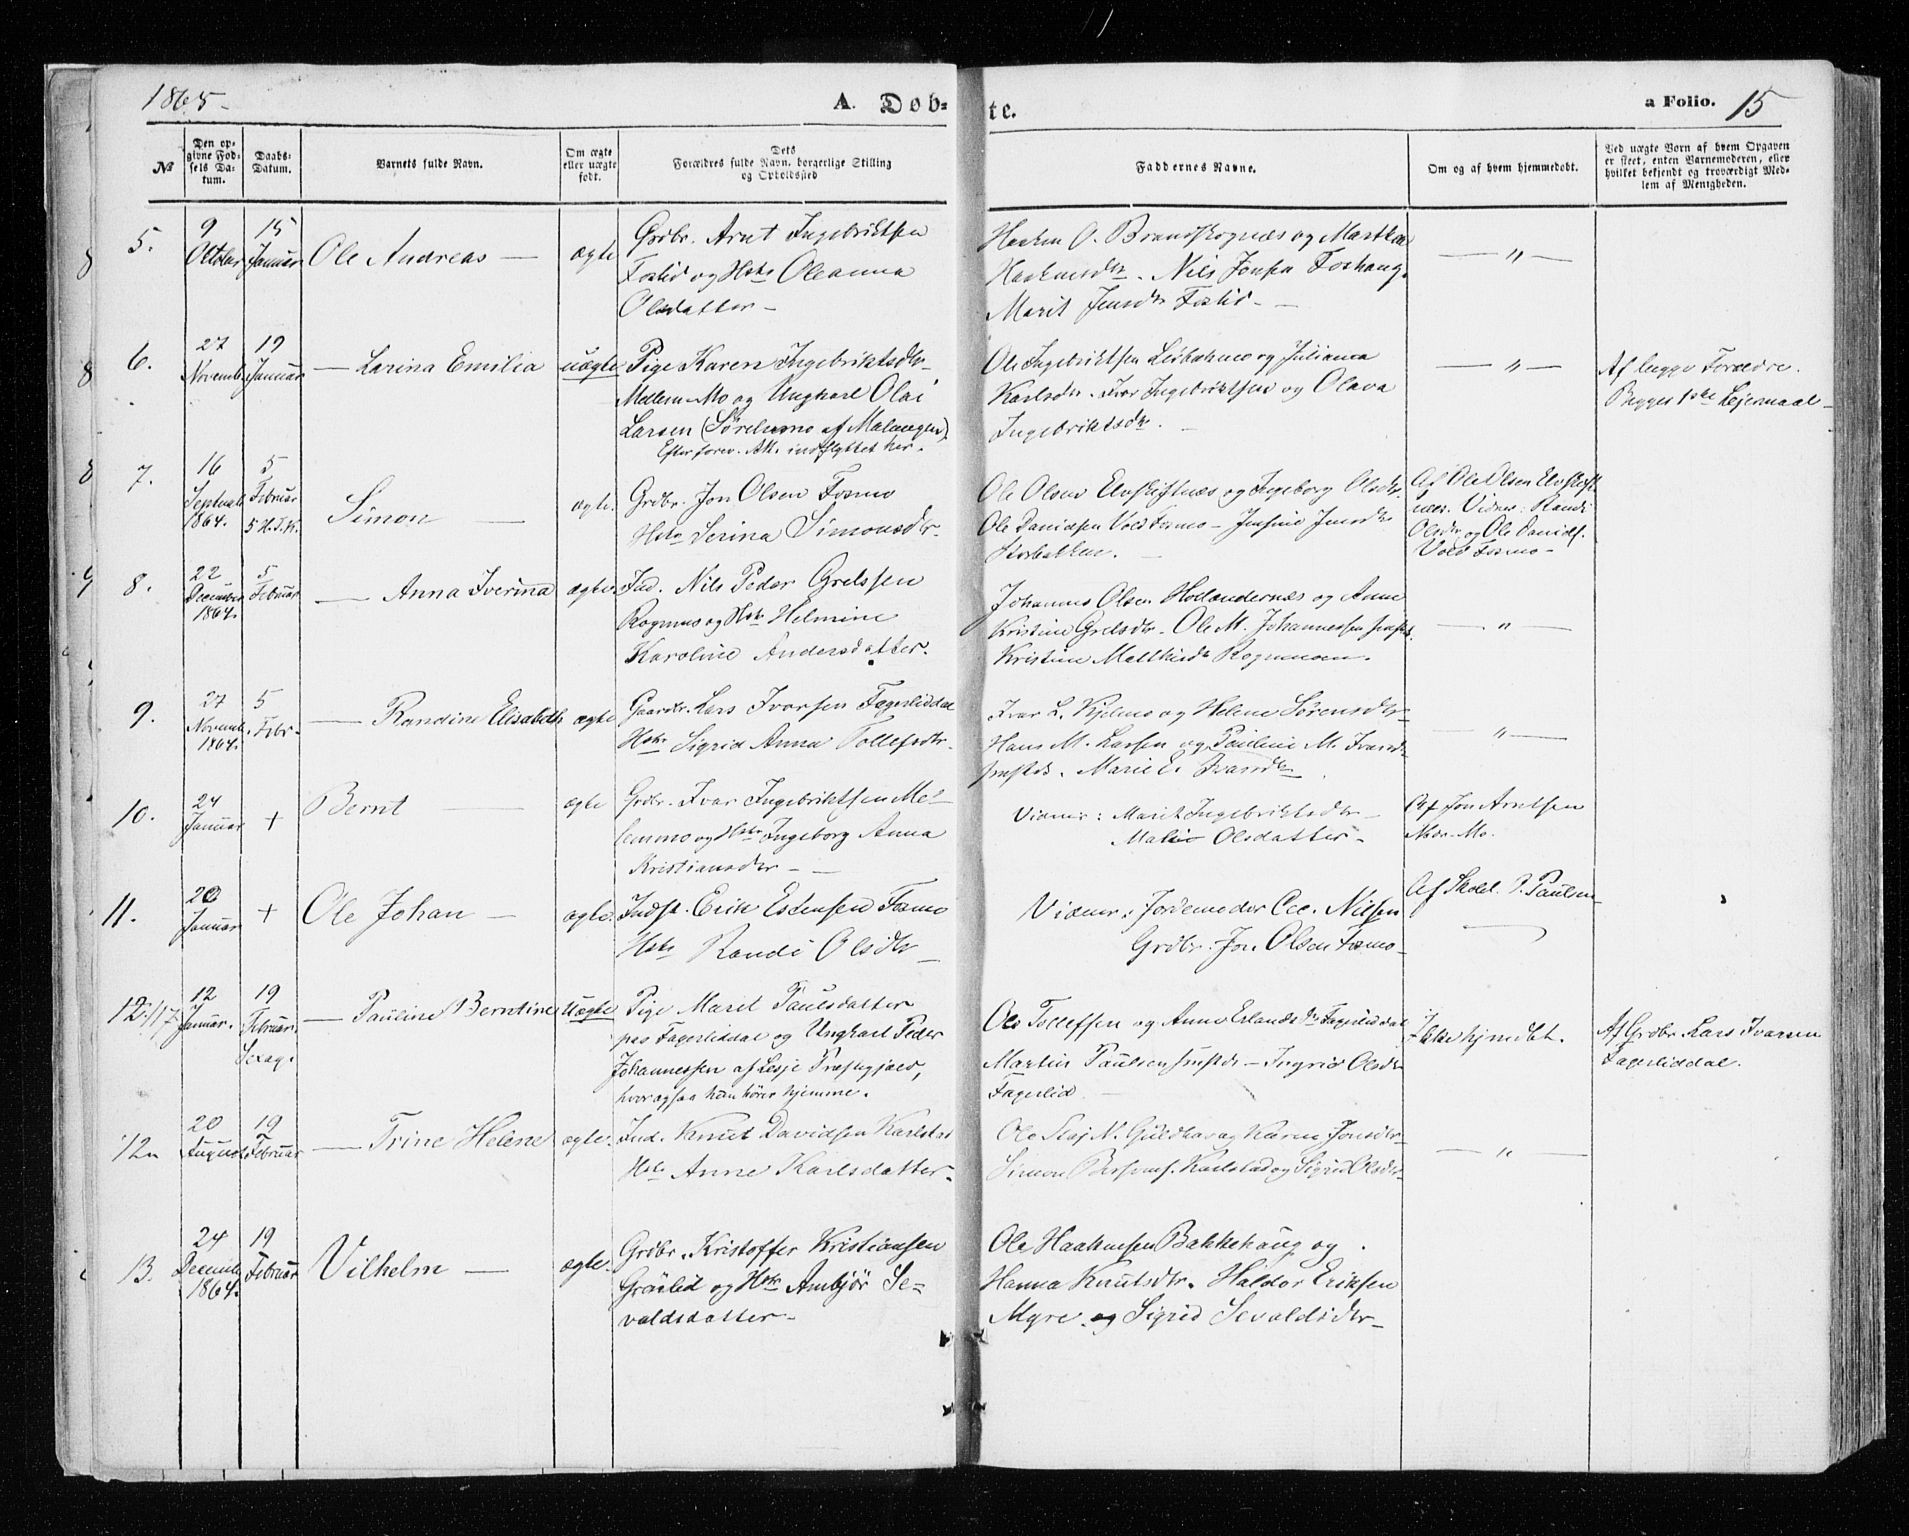 1865.
A. Døb-
te.
a Folio. 15
№
Den op-
givne Fød-
sels Da-
tum.
Daabs-
Datum.
Barnets fulde Navn.
Om ægte
eller uægte
født.
Dets
Forældres fulde Navn, borgerlige Stilling
og Opholdssted
Faddernes Navne.
Om og af hvem hjemmedøbt.
Ved uægte Børn af hvem Opgaven
er skeet, enten Barnemoderen, eller
hvilket bekjendt og troværdigt Med-
lem af Menigheden.
5.
9
October
15
Januar
Ole Andreas —
ægte
Grdbr. Arnt Ingebriktsen
Foslid og Hstr Oleanna
Olsdatter —
Haaken O. Brandskognæs og Martha
Haakensdtr. Nils Jonsen Foshaug.
Marit Jensdtr Foslid —
— " —
6.
27
Novemb.
19
Januar
— Larina Emilia
uægte
Pige Karen Ingebriktsdtr
Mellem-Mo og Ungkarl Olai
Larsen (Sørelvmo af Malangen)
Efter forev. Att. indflyttet her.
Ole Ingebriktsen Leibakmo og Julianna
Karlsdtr. Ivar Ingebriktsen og Olava
Ingebriktsdtr. —
— " —
Af begge Forældre.
Begges 1ste Lejermaal —
7.
16
Septemb.
1864.
5
Februar
5 H.3.K.
Simon —
ægte.
Grdbr. Jon Olsen Fosmo
Hstr Serina Simonsdtr.
Ole Olsen Elvskiftnæs og Ingeborg Olsdtr.
Ole Danielsen Vold Fosmo — Jensine Jensdtr
Storbakken. —
Af Ole Olsen Elvskift-
næs. Vidner: Randi
Olsdtr og Ole Daniels.
Vold Fosmo —
8.
22
December
1864.
5
Februar
— Anna Iverina
ægte.
Ind. Nils Peder Grelssen
Rognmo og Hstr Helmine
Karoline Andersdatter.
Johannes Olsen Holændernæs og Anne
Kristine Grelsdtr. Ole M. Johannessen smstds.
Kristine Matthisdtr Rognmoen.
— " —
9.
27
Novemb.
1864.
5
Febr.
— Randine Elisabeth
ægte
Gaardbr. Lars Ivarsen Fagerliddal
Hstr Sigrid Anna Tollefsdtr.
Ivar L. Kjelmo og Helene Sørensdtr
Hans M. Larsen og Pauline M. Ivarsdtr
smstds. Marie E. Ivarsdtr
— " —
10.
24
Januar
+
Bernt —
ægte
Grdbr. Ivar Ingebriktsen Me-
lemmo og Hstr Ingeborg Anna
Kristiansdtr — —
Vidner: Marit Ingebriktsdtr —
Malie Olsdatter —
Af Jon Arntsen
Nedr. Mo.
11.
20
Januar
+
Ole Johan —
ægte.
Indst. Erik Estensen Fosmo
Hstr Randi Olsdtr —
Vidner: Jordemoder Cec. Nilsen
Grdbr. Jon Olsen Fosmo —
Af Skolel. P. Paulsen
12./17.
12
Januar.
19
Februar.
Sexag.
— Pauline Berntine
Uægte
Pige Marit Paulsdatter
paa Fagerliddal og Ungkarl Peder
Johannessen af Lesje Præstegjæld,
hvor ogsaa han hører hjemme.
Ole Tolleffsen og Anne Erlandsdtr Fagerliddal
Martin Paulsen smstds — Ingrid Olsdtr
Fagerlid —
Ikke hjmdbt.
Af Grdbr. Lars Ivarsen
Fagerliddal.
12a
20
August
19
Februar
— Trine Helene
ægte.
Ind. Knut Davidsen Karlstad
Hstr Anne Karlsdatter —
Ole Staj N. Guldhav og Karen Jonsdtr
Simon Karlstad og Sigrid Olsdtr —
— " —
13.
24
Decemb.
1864.
19
Februar
Vilhelm —
ægte.
Grdbr. Kristoffer Kristiansen
Gråelid og Hstr Ambjør Se-
valdsdatter —
Ole Haakensen Bakkehaug og
Hanna Knutsdtr. Haldor Eriksen
Myre og Sigrid Sevaldsdtr —